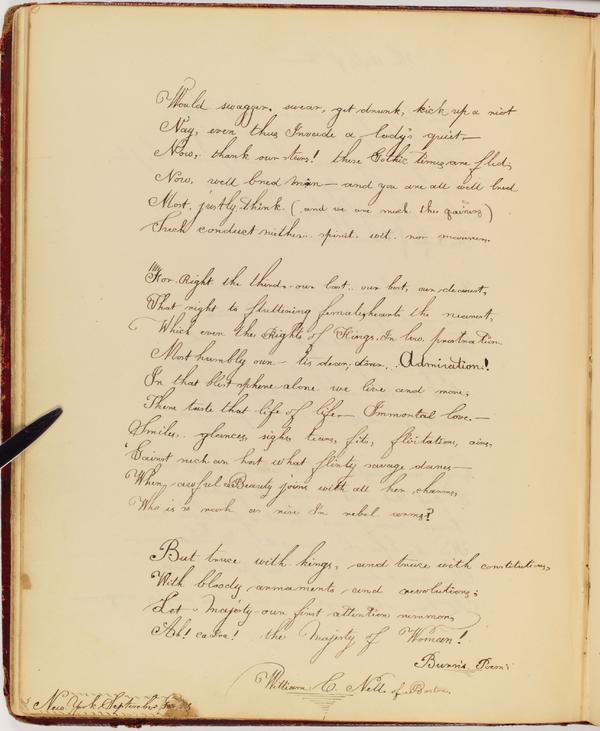 Would swagger, swear, get drunk, kick up a riot
Nay, even thus Invade a lady's quiet—
Now, thank our stars! these Gothic times are fled,
Now, well bred men — and you are all well bred
Most justly think (and we are much the gainers)
Such conduct neither spirit, wit, nor manners.
For Right the third, our last, our best, our dearest,
That right to fluttering female hearts the nearest,
Which even the Rights of Kings, In low prostration
Most humbly own — tis dear, dear Admiration!
In that blest sphere alone we live and move,
There taste that life of life — Immortal love.—
Smiles, glances, sighs, tears, fits, flirtations, airs,
'Gainst such an host what flinty savage dares—
When awful Beauty joins with all her charms,
Who is so rash as rise In rebel arms?
But truce with kings, and truce with constitutions,
With bloody armaments and revolutions;
Let Majesty our first attention summon,
Ah! ca ira! the Majesty of Woman!
Burns Poems
William C. Nell of Boston
New York September